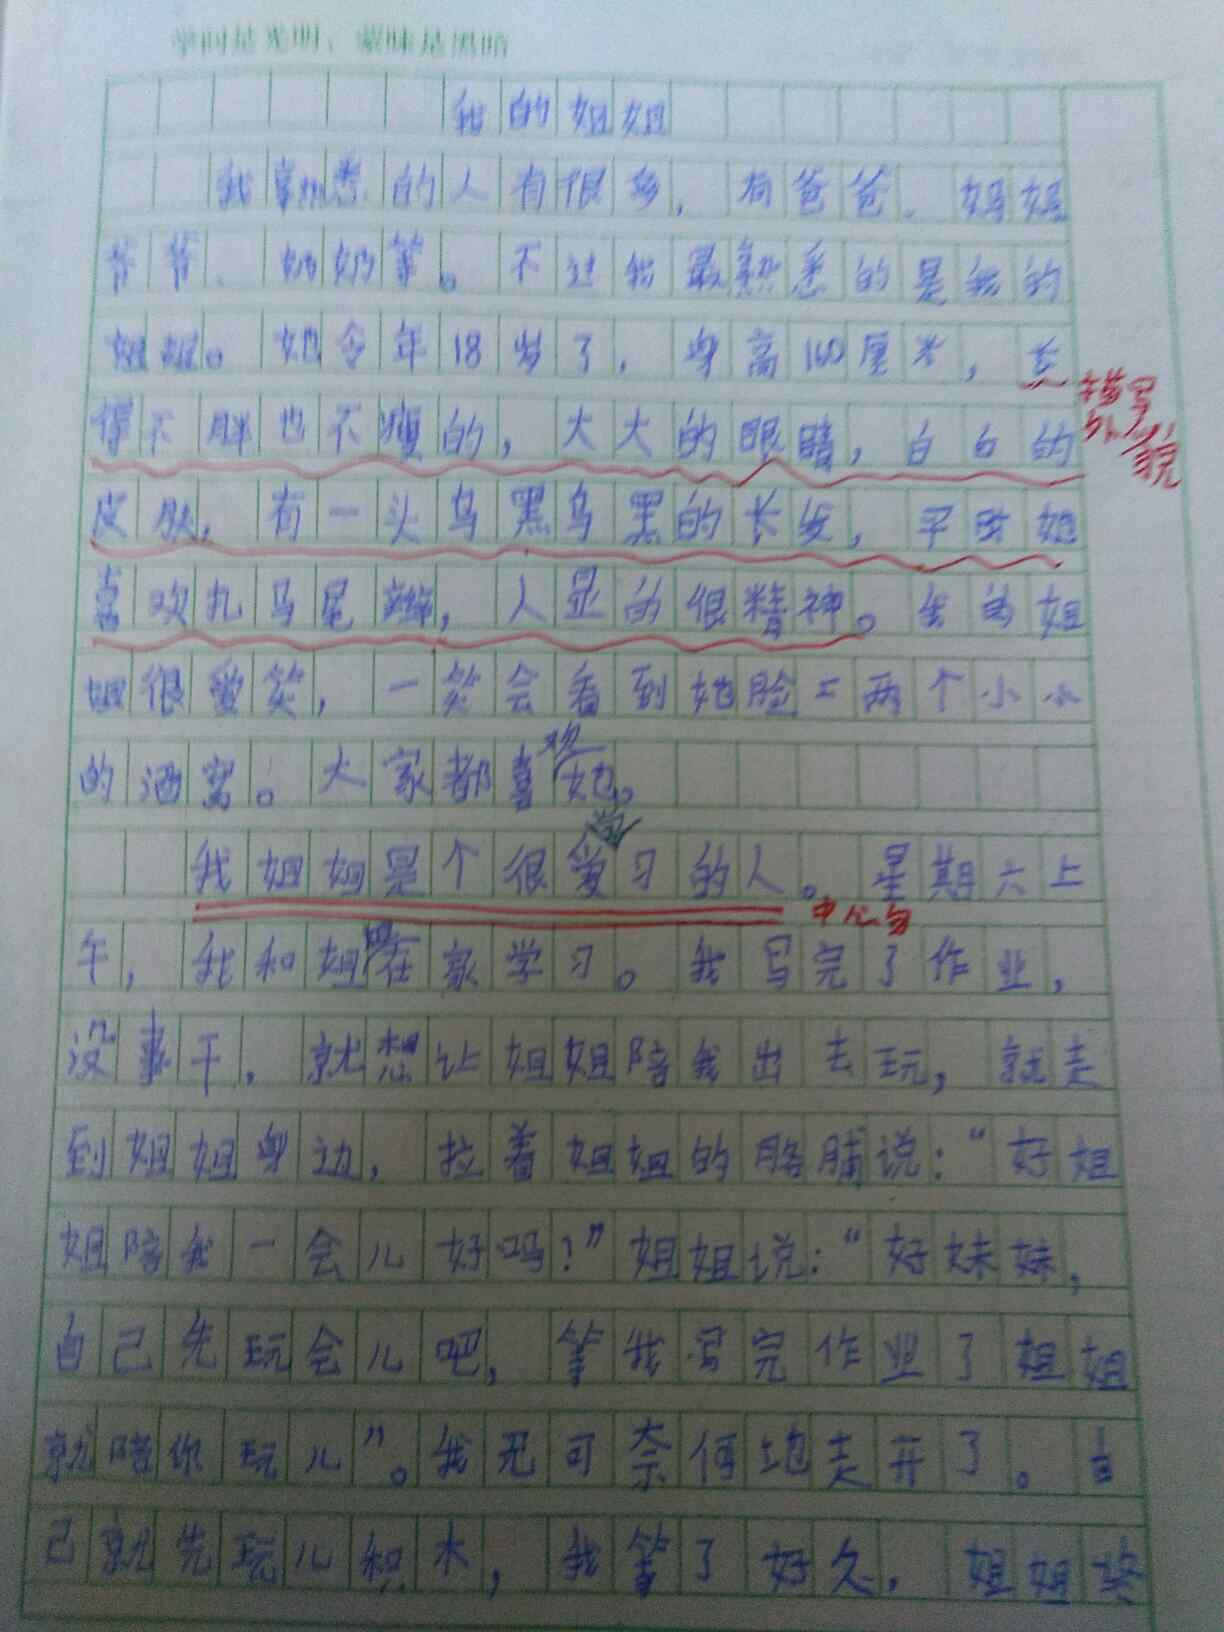 学问是光明，蒙昧是黑暗
我的姐姐
我熟悉的人有很多，有爸爸、妈妈
爷爷、奶奶等。不过我最熟悉的是我的
姐姐。她今年18岁了，身高160厘米，长
得不胖也不瘦的，大大的眼睛，白白的
描写外貌
皮肤，有一头乌黑乌黑的长发，平时她
喜欢扎马尾辫，人显的很精神。我的姐
姐很爱笑，一笑会看到她脸上两个小小
的酒窝。大家都喜欢她。
我姐姐是个很爱学习的人。星期六上
中心句
午，我和姐姐在家学习。我写完了作业，
没事干，就想让姐姐陪我出去玩，就走
到姐姐身边，拉着姐姐的胳脯说：“好姐
姐陪我一会儿好吗？”姐姐说：“好妹妹，
自己先玩会儿吧，等我写完作业了姐姐
就陪你玩儿”。我无可奈何地走开了。自
己就先玩儿积木，我等了好久，姐姐终